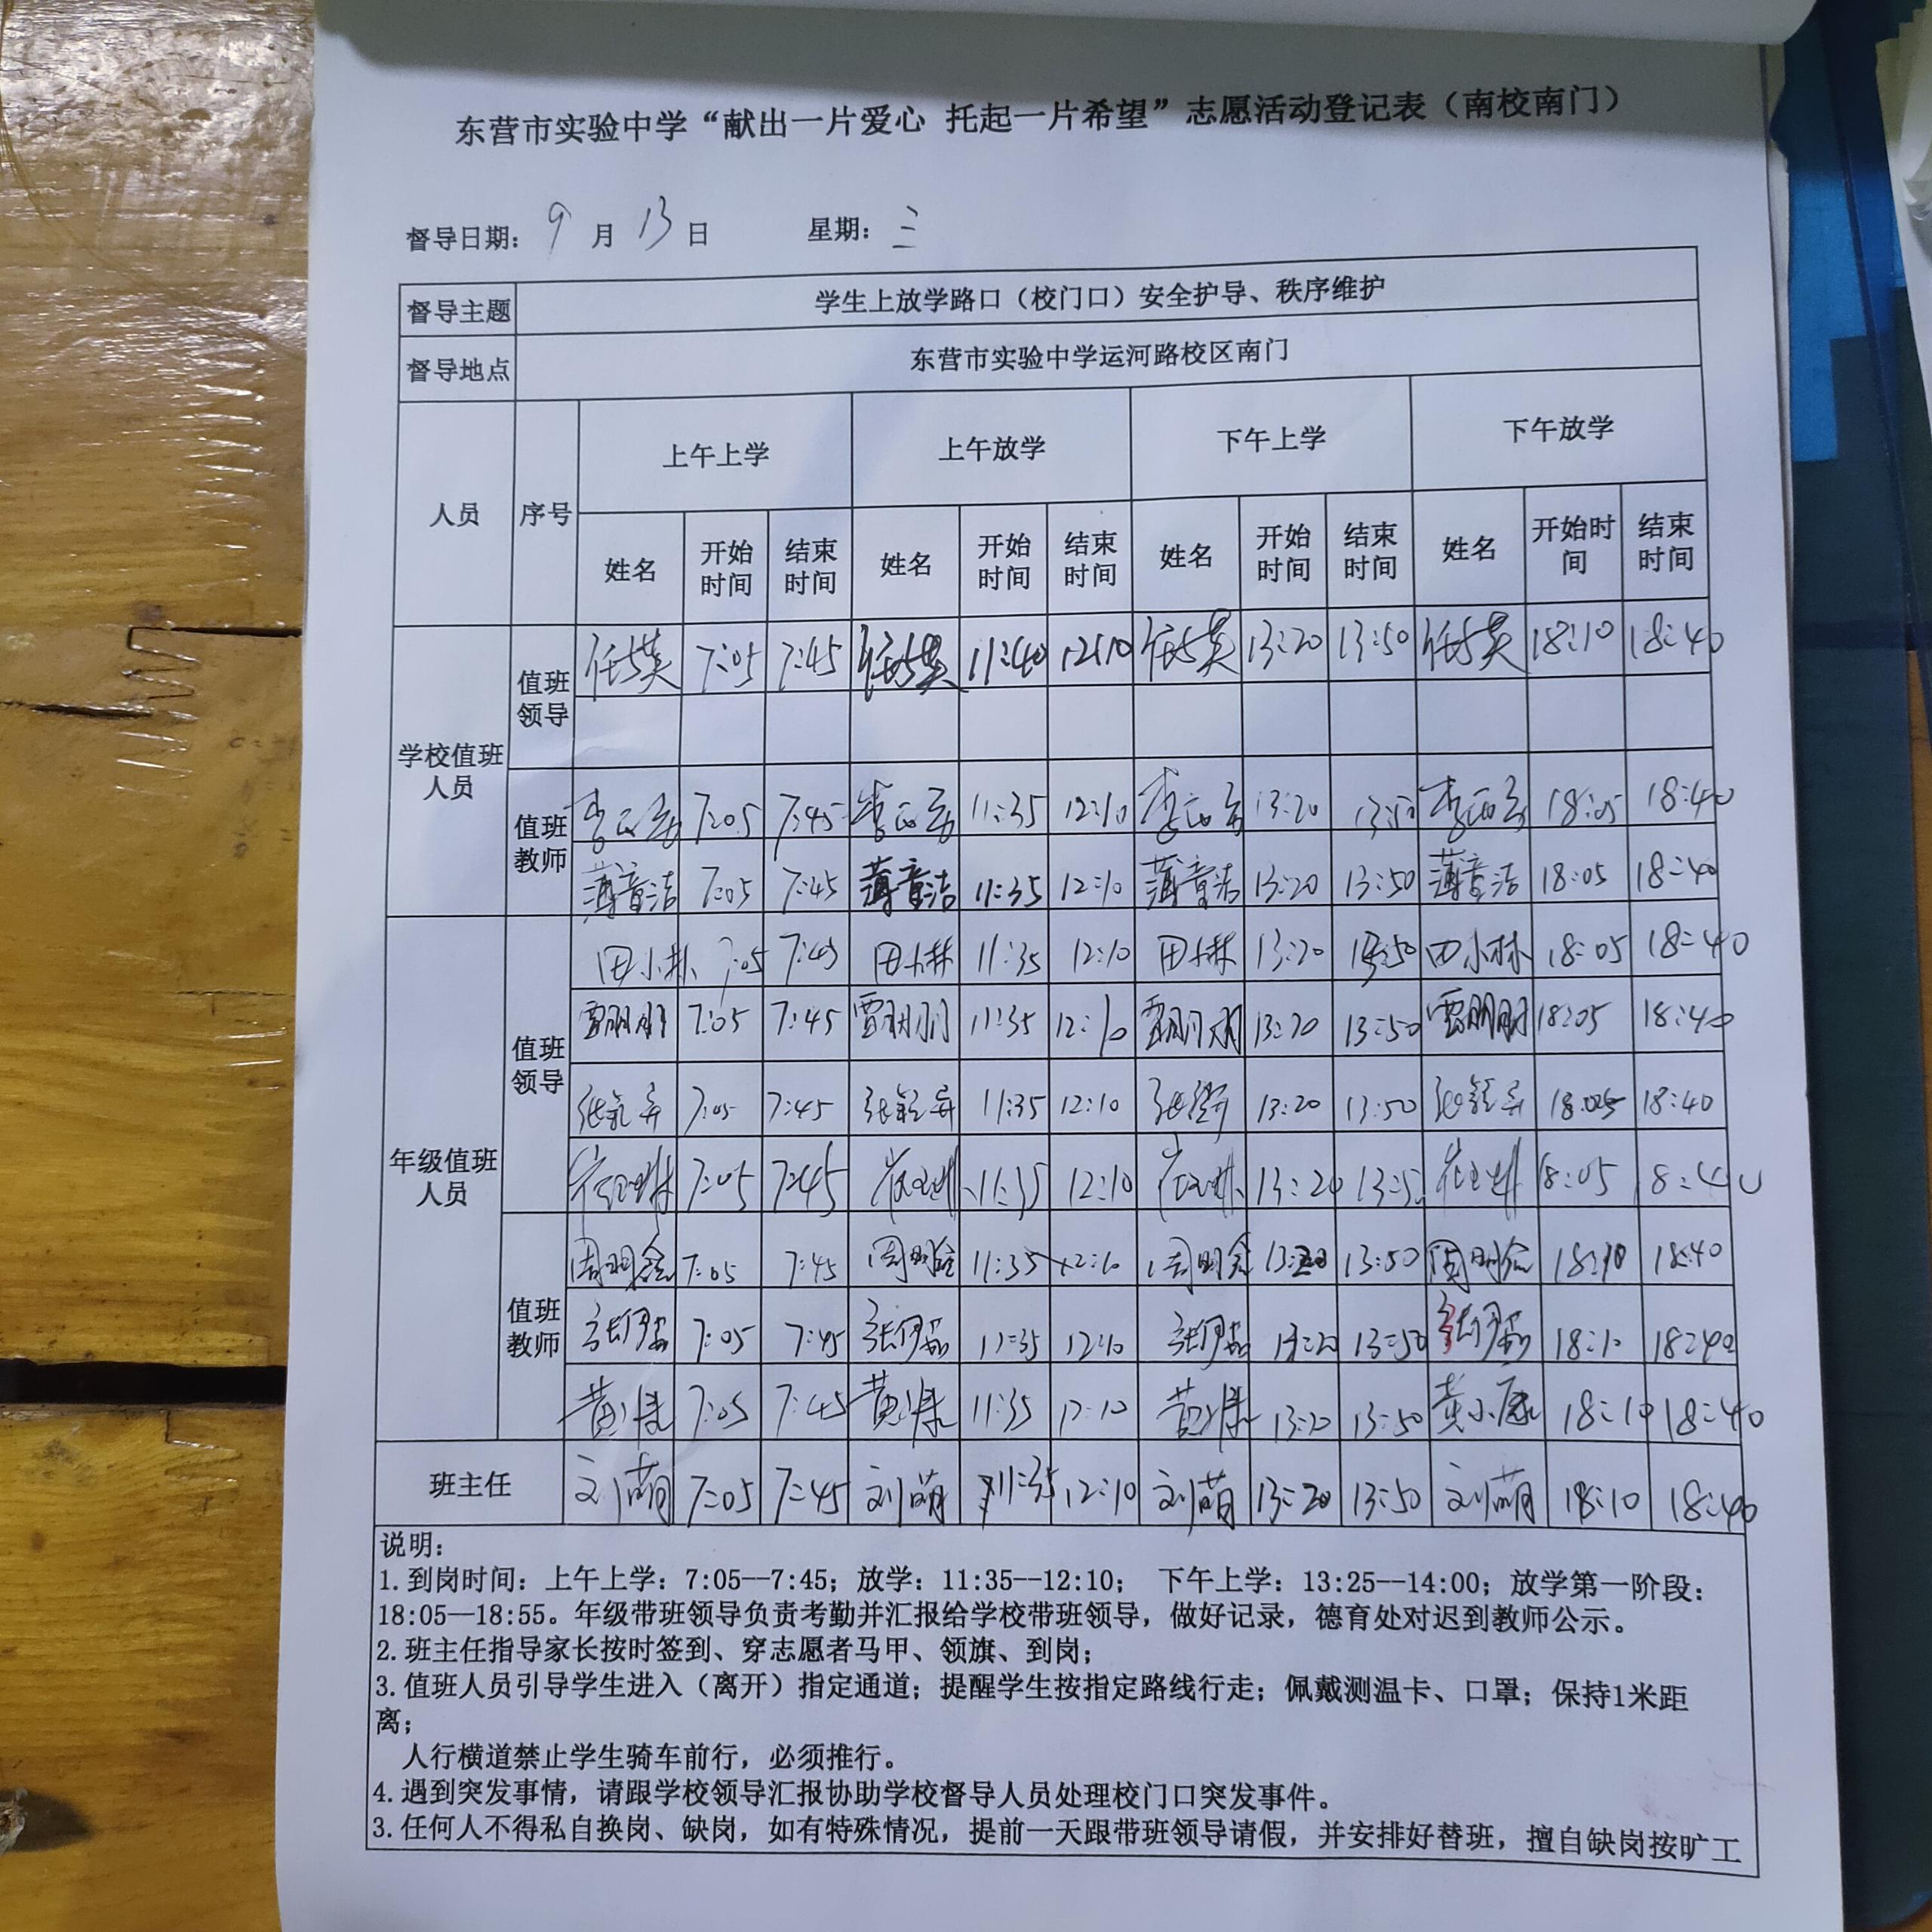 东营市实验中学“献出一片爱心 托起一片希望”志愿活动登记表（南校南门）
督导日期： 9 月 13 日 星期： 三
督导主题 学生上放学路口（校门口）安全护导、秩序维护
督导地点 东营市实验中学运河路校区南门
人员 序号 上午上学 上午放学 下午上学 下午放学
姓名 开始时间 结束时间 姓名 开始时间 结束时间 姓名 开始时间 结束时间 姓名 开始时间 结束时间
学校值班人员
值班领导 7:05 7:45 11:40 12:10 13:20 13:50 18:10 18:40
值班教师 7:05 7:45 11:35 12:10 13:20 18:05 18:40
薄童洁 7:05 7:45 薄童洁 11:35 12:10 薄童洁 13:20 13:50 薄童洁 18:05 18:40
年级值班人员
值班领导
田小林 7:05 7:45 田小林 11:35 12:10 田小林 13:20 田小林 18:05 18:40
贾朋朋 7:05 7:45 贾朋朋 11:35 12:10 贾朋朋 13:20 13:50 贾朋朋 18:05 18:40
7:05 7:45 11:35 12:10 13:20 13:50 18:40
7:05 7:45 11:35 12:10 13:20 18:05 18:40
值班教师
7:05 7:45 11:35 12:10 13:20 13:50 18:10 18:40
7:05 7:45 11:35 12:10 13:20 13:50 18:10 18:40
黄小康 7:05 7:45 黄小康 11:35 12:10 黄小康 13:20 13:50 黄小康 18:10 18:40
班主任 刘萌 7:05 7:45 刘萌 11:35 12:10 刘萌 13:20 13:50 刘萌 18:10 18:40
说明：
1.到岗时间：上午上学：7:05--7:45；放学：11:35--12:10； 下午上学：13:25--14:00；放学第一阶段：
18:05--18:55。年级带班领导负责考勤并汇报给学校带班领导，做好记录，德育处对迟到教师公示。
2.班主任指导家长按时签到、穿志愿者马甲、领旗、到岗；
3.值班人员引导学生进入（离开）指定通道；提醒学生按指定路线行走；佩戴测温卡、口罩；保持1米距
离；
人行横道禁止学生骑车前行，必须推行。
4.遇到突发事情，请跟学校领导汇报协助学校督导人员处理校门口突发事件。
3.任何人不得私自换岗、缺岗，如有特殊情况，提前一天跟带班领导请假，并安排好替班，擅自缺岗按旷工